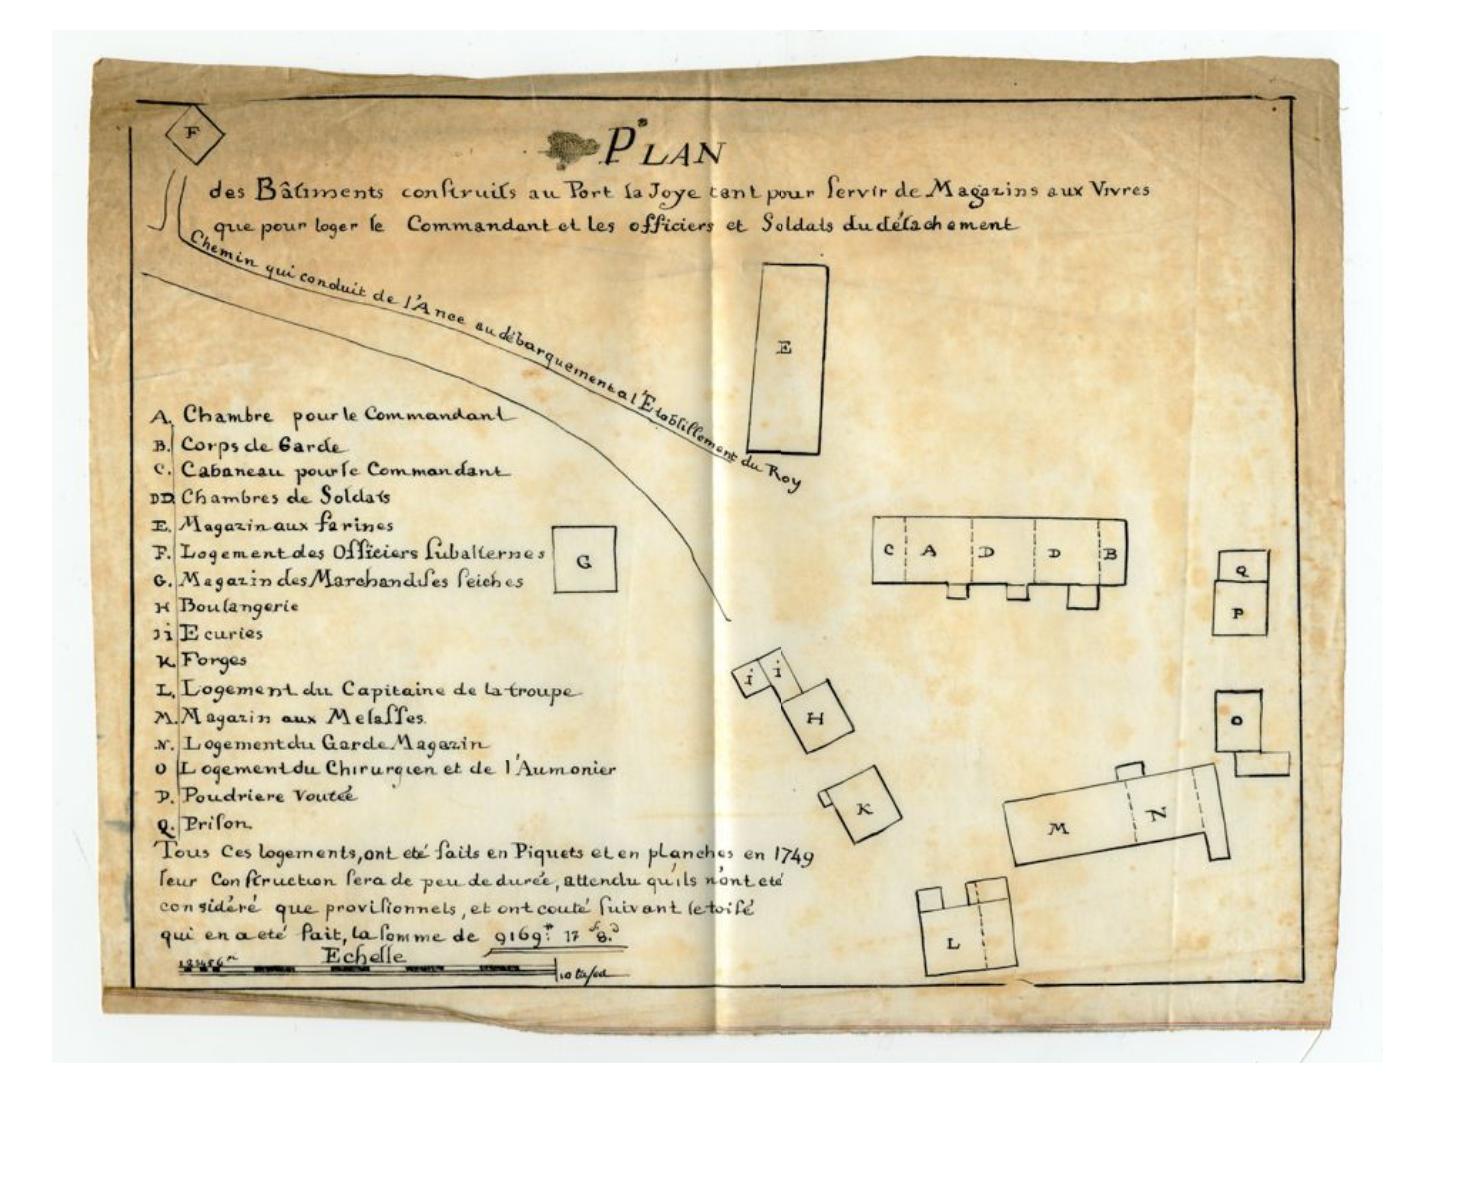 F
PLAN
des Bâtiments construits au Port la Joye tant pour servir de Magazins aux Vivres
que pour loger le Commandant et les officiers et Soldats du détachement
Chemin qui conduit de l'Ance au débarquement a l'Etablissement du Roy
E
A. Chambre pour le Commandant
B. Corps de Garde
C. Cabaneau pour le Commandant
DD. Chambres de Soldats
E. Magazin aux farines
F. Logement des Officiers subalternes
G. Magazin des Marchandises seiches
H Boulangerie
Ji Ecuries
K Forges
L. Logement du Capitaine de la troupe
M. Magazin aux Melasses.
N. Logement du Garde Magazin
O Logement du Chirurgien et de l'Aumonier
P. Poudriere Voutée
Q. Prison.
G
C A D D B
Q
P
i i
H
O
K
M N
L
Tous Ces logements, ont eté faits en Piquets et en planches en 1749
leur Construction sera de peu de durée, attendu qu'ils n'ont eté
considéré que provisionnels, et ont couté suivant le toisé
qui en a eté fait, la somme de 9169# 17 s 8 d
Echelle
123456
10